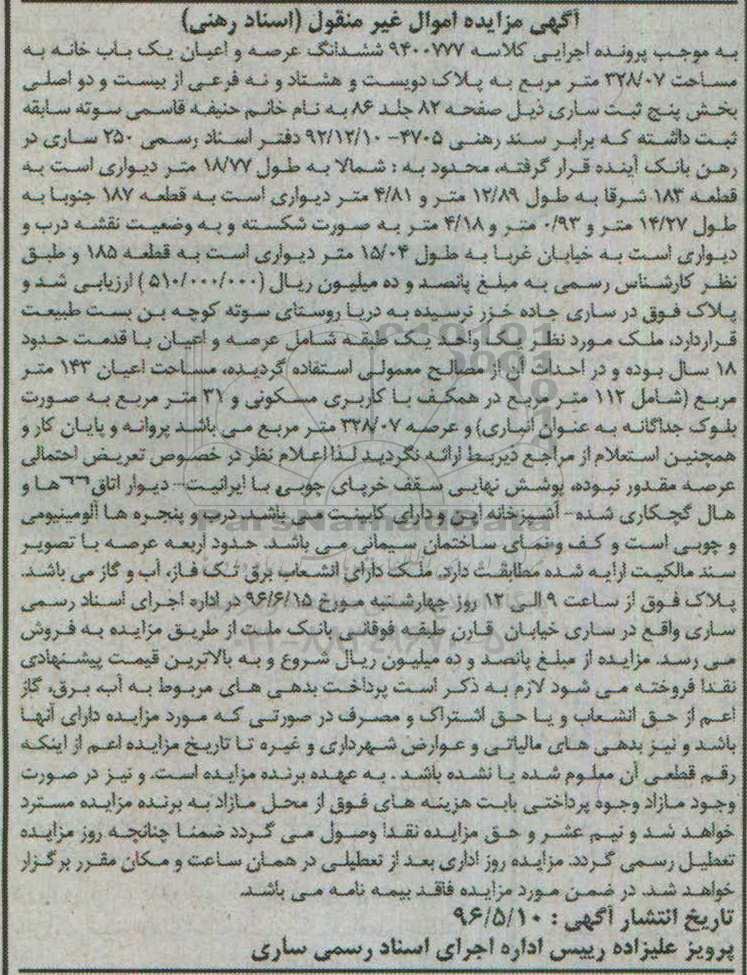 آگهی مزایده اموال غیر منقول (اسناد رهنی)
به موجب پرونده اجرایی کلاسه ۹۴۰۰۷۷۷ ششدانگ عرصه و اعیان یک باب خانه به
مساحت ۳۲۸/۰۷ متر مربع به پلاک دویست و هشتاد و نه فرعی از بیست و دو اصلی
بخش پنج ثبت ساری ذیل صفحه ۸۲ جلد ۸۶ به نام خانم حنیفه قاسمی سوته سابقه
ثبت داشته که برابر سند رهنی ۴۷۰۵- ۹۲/۱۲/۱۰ دفتر اسناد رسمی ۲۵۰ ساری در
رهن بانک آینده قرار گرفته، محدود به : شمالا به طول ۱۸/۷۷ متر دیواری است به
قطعه ۱۸۳ شرقا به طول ۱۲/۸۹ متر و ۴/۸۱ متر دیواری است به قطعه ۱۸۷ جنوبا به
طول ۱۴/۲۷ متر و ۰/۹۳ متر و ۴/۱۸ متر به صورت شکسته و به وضعیت نقشه درب و
دیواری است به خیابان غربا به طول ۱۵/۰۴ متر دیواری است به قطعه ۱۸۵ و طبق
نظر کارشناس رسمی به مبلغ پانصد و ده میلیون ریال (۵۱۰/۰۰۰/۰۰۰ ) ارزیابی شد و
پلاک فوق در ساری جاده خزر نرسیده به دریا روستای سوته کوچه بن بست طبیعت
قراردارد، ملک مورد نظر یک واحد یک طبقه شامل عرصه و اعیان با قدمت حدود
۱۸ سال بوده و در احداث آن از مصالح معمولی استفاده گردیده، مساحت اعیان ۱۴۳ متر
مربع (شامل ۱۱۲ متر مربع در همکف با کاربری مسکونی و ۳۱ متر مربع به صورت
بلوک جداگانه به عنوان انباری) و عرصه ۳۲۸/۰۷ متر مربع می باشد پروانه و پایان کار و
همچنین استعلام از مراجع ذیربط ارائه نگردید لذا اعلام نظر در خصوص تعریض احتمالی
عرصه مقدور نبوده، پوشش نهایی سقف خرپای چوبی با ایرانیت- دیوار اتاق ها و
هال گچکاری شده- آشپزخانه اپن و دارای کابینت می باشد. درب و پنجره ها آلومینیومی
و چوبی است و کف و نمای ساختمان سیمانی می باشد. حدود اربعه عرصه با تصویر
سند مالکیت ارایه شده مطابقت دارد. ملک دارای انشعاب برق تک فاز، آب و گاز می باشد.
پلاک فوق از ساعت ۹ الی ۱۲ روز چهارشنبه مورخ ۹۶/۶/۱۵ در اداره اجرای اسناد رسمی
ساری واقع در ساری خیابان قارن طبقه فوقانی بانک ملت از طریق مزایده به فروش
می رسد. مزایده از مبلغ پانصد و ده میلیون ریال شروع و به بالاترین قیمت پیشنهادی
نقدا فروخته می شود لازم به ذکر است پرداخت بدهی های مربوط به آب، برق، گاز
اعم از حق انشعاب و یا حق اشتراک و مصرف در صورتی که مورد مزایده دارای آنها
باشد و نیز بدهی های مالیاتی و عوارض شهرداری و غیره تا تاریخ مزایده اعم از اینکه
رقم قطعی آن معلوم شده یا نشده باشد . به عهده برنده مزایده است. و نیز در صورت
وجود مازاد وجوه پرداختی بابت هزینه های فوق از محل مازاد به برنده مزایده مسترد
خواهد شد و نیم عشر و حق مزایده نقدا وصول می گردد ضمنا چنانچه روز مزایده
تعطیل رسمی گردد. مزایده روز اداری بعد از تعطیلی در همان ساعت و مکان مقرر برگزار
خواهد شد. در ضمن مورد مزایده فاقد بیمه نامه می باشد.
تاریخ انتشار آگهی : ۹۶/۵/۱۰
پرویز علیزاده رییس اداره اجرای اسناد رسمی ساری